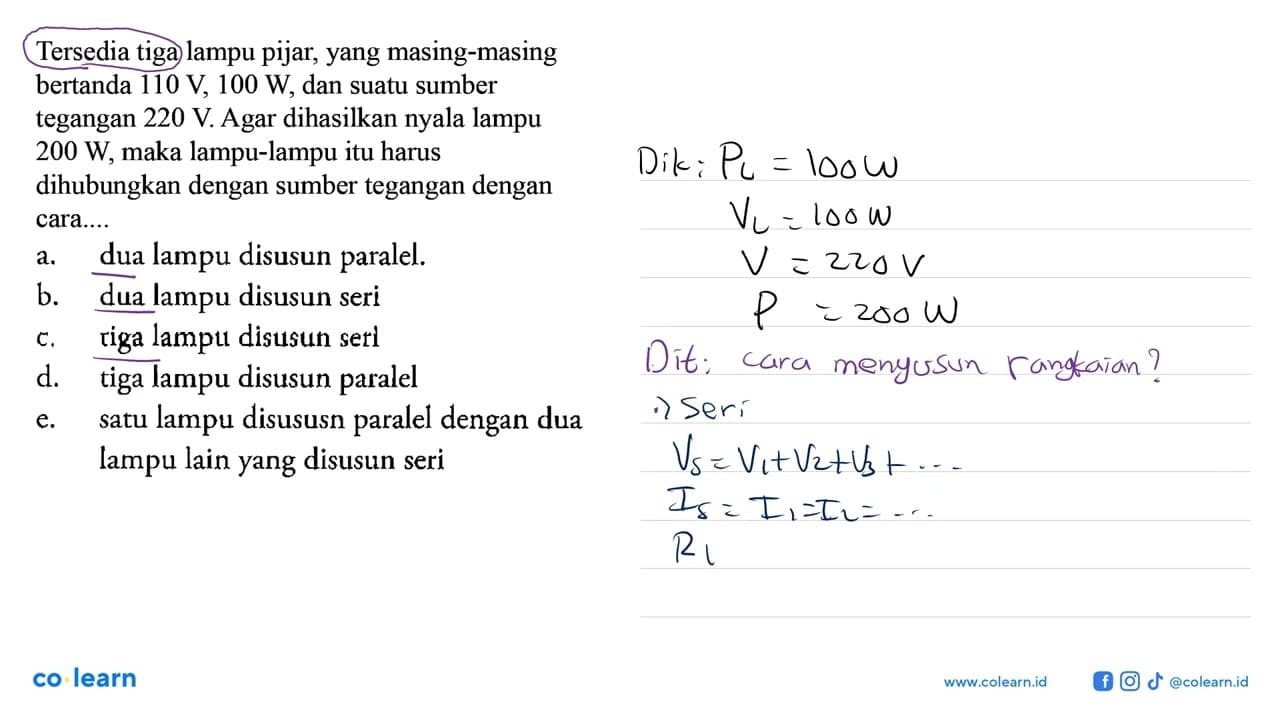 Tersedia tiga lampu pijar, yang masing-masing
bertanda 110 V, 100 W, dan suatu sumber
tegangan 220 V. Agar dihasilkan nyala lampu
200 W, maka lampu-lampu itu harus
dihubungkan dengan sumber tegangan dengan
cara....
a. dua lampu disusun paralel.
b. dua lampu disusun seri
c. tiga lampu disusun seri
d. tiga lampu disusun paralel
e. satu lampu disususn paralel dengan dua
lampu lain yang disusun seri
Dik: PL = 100 W
VL = 100 W
V = 220 V
P = 200 W
Dit: cara menyusun rangkaian?
∴) Seri
Vs = V1 + V2 + V3 + ...
Is = I1 = I2 = ...
R1
co learn
www.colearn.id
@colearn.id